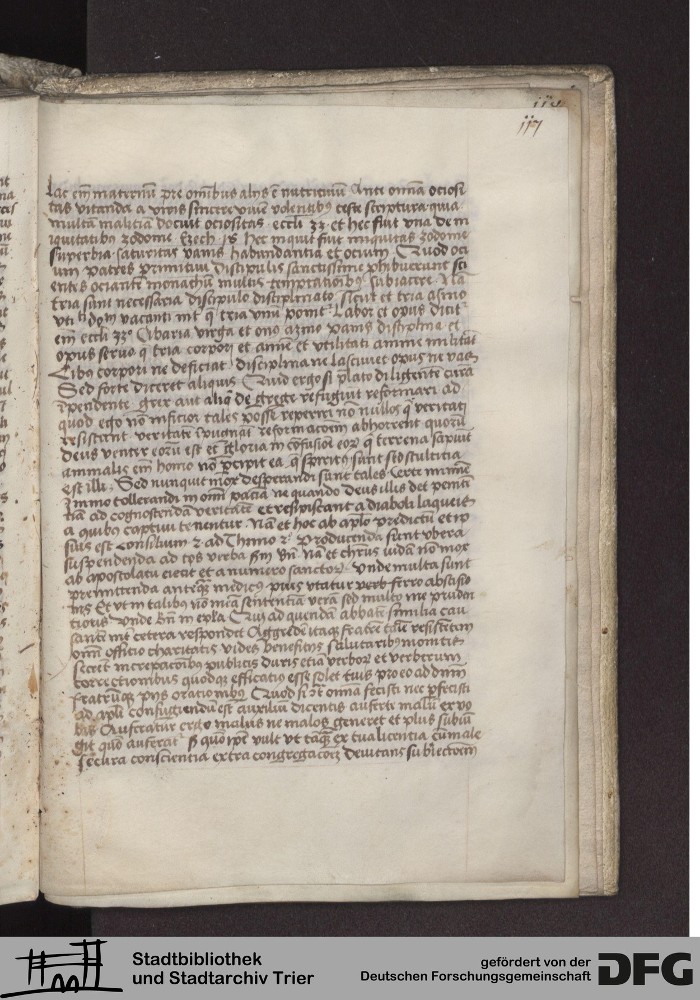 117
Lac em maternu pre omnibus alijs e nutritiuu Anti omnia ociosi
tas vitanda a viris sincere viuere volentibus teste scriptura quia
multa malicia docuit ociositas eccli 33 et hec fuit vna de in
iquitatibus zodome Ezech 16 hec inquit fuit iniquitas zodome
superbia saturitas panis habundantia et ocium Quod oci
um patres primitiui discipulis sanctissime prohibuerunt sci
entes ociante monachum multis temptationibus subiacere Na
tria sunt necessaria discipulo disciplinato sicut et tria asino
vacanti q tria vni ponit Labor et opus dicit
em eccli 33 Cibaria virga et ono asino panis disciplina et
opus seruo q tria corpori et anime et vtilitati anime militat
Cibus corpori ne deficiat disciplina ne lasciuiet opus ne vacet
Sed forte diceret aliquis Quid ergo si prelato diligente cura
inpendente grex aut aliq de grege refugiut reformari ad
quod ego no inficior tales posse reperiri no nullos q veritati
resistent veritate reformacoem abhorrent quoru
deus venter eoru est et gloria in confusioe eor q terrena sapiut
animalis em homo no percipit ea q spiritus sunt stulticia
est illi Sed nunquit mox desperandi sunt tales certe minime
Immo tollerandi in omni pacia ne quando deus illis det peniten
tia ad cognoscenda veritate et resipiscant a diaboli laqueis
a quibus captiui tenentur Na et hoc ab aplo predictu et ip
sius est consilium 2 ad Thimo 2 Producenda sunt vbera
suspendenda ad tps verba Na et christus iuda no mox
ab apostolatu eiecit et a numero sanctor Vnde multa sunt
premittenda anteq medicus pius vtatur ferro abscisio
nis Et vt in talibus no mea sententia vera sed multo me pruden
tioris Vnde in epla Qui ad quenda abbate similia cau
sante int cetera respondet Aggredere itaq fratre tuu resistetem
omni officio charitatis vides beneficijs salutaribus monitis
secret increpacoibus publicis duris etia verbor et verberum
correctionibus quodq efficatius esse solet tuis pro eo ad dnm
fratruq pijs orationibus Quod si omnia fecisti nec profecisti
ad apli confugiendu est auxiliu dicentis auferte malu ex vo
bis Auferatur ergo malus ne malos generet et plus subiu
git quo auferat quo ipe vult vt ex tua licentia cu male
secura conscientia extra congregacoe deuitans subiectoem
Stadtbibliothek
und Stadtarchiv Trier
gefördert von der
Deutschen Forschungsgemeinschaft
DFG